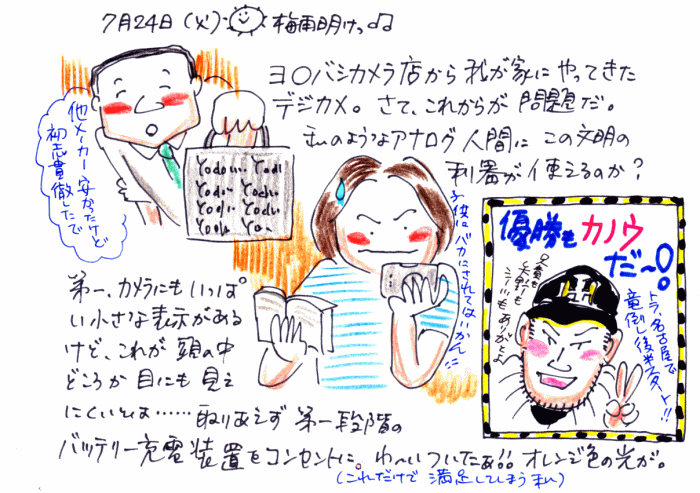 7月24日(火) 梅雨明けっ♫
ヨ〇バシカメラ店から我が家にやってきた
デジカメ。さて、これからが問題だ。
私のようなアナログ人間にこの文明の
利器が使えるのか?
他メーカー安かったけど
初志貫徹したで
Yodo… Yodo
子供にバカにされてはいかん!!
優勝も カノウ
だ〜!
トラ、名古屋で
竜倒し後半スタート!!
第一、カメラにもいっぱ
い小さな表示がある
けど、これが頭の中
どころか目にも見え
にくいとは……取りあえず第一段階の
バッテリー充電装置をコンセントに。わ〜いついたぁ!!オレンジ色の光が。
(これだけで満足してしまうわん)